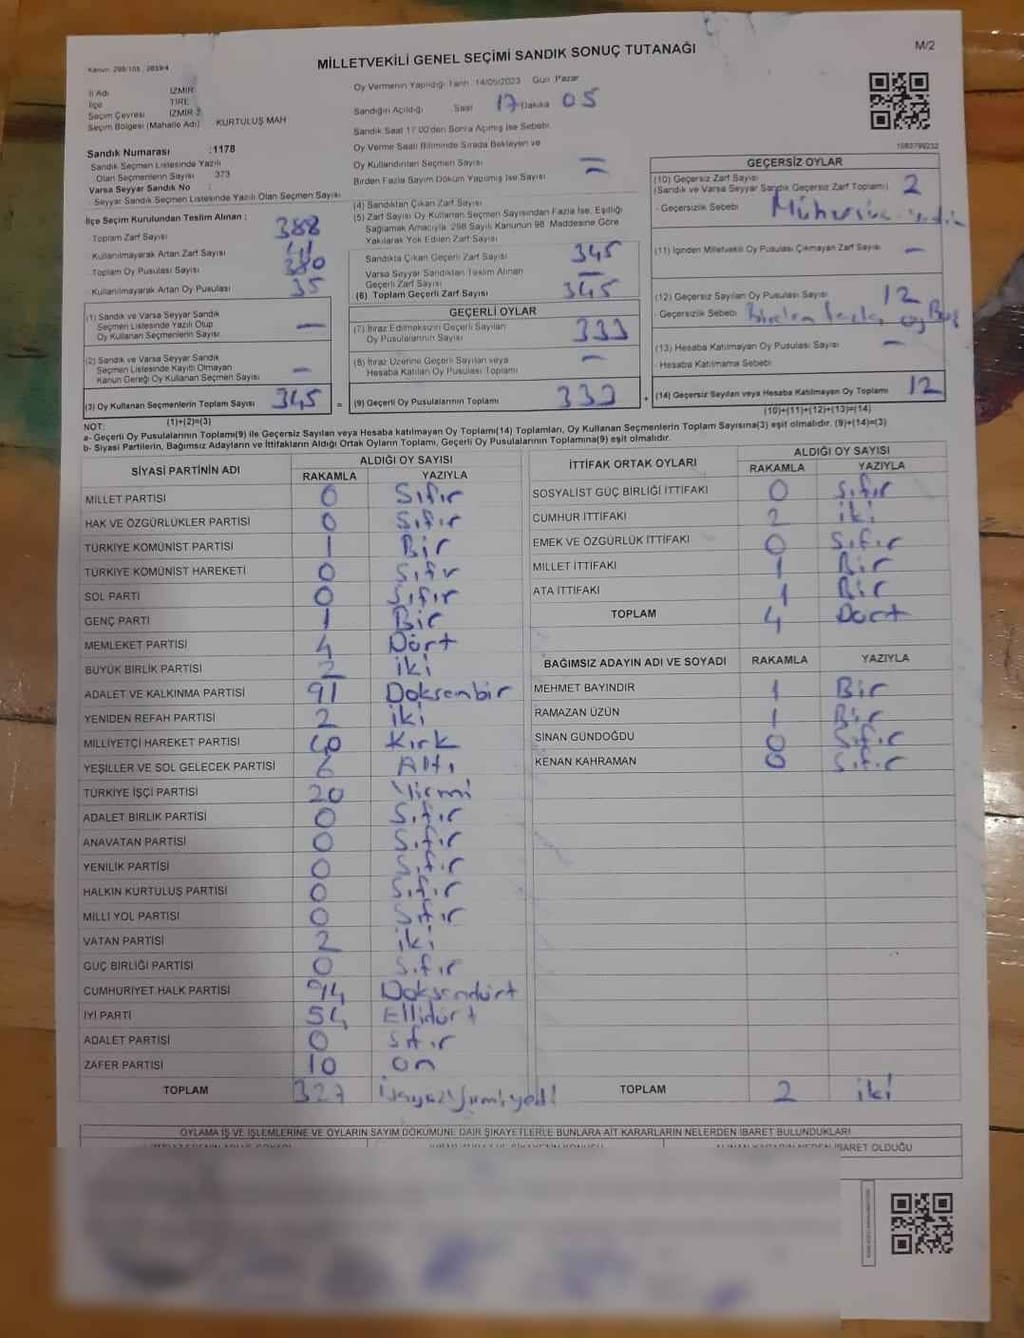 MİLLETVEKİLİ GENEL SEÇİMİ SANDIK SONUÇ TUTANAĞI
M/2
İl Adı İZMİR
İlçe TİRE
Seçim Çevresi İZMİR 2
Seçim Bölgesi (Mahalle Adı) KURTULUŞ MAH
Sandık Numarası :1178
Sandık Seçmen Listesinde Yazılı
Olan Seçmenlerin Sayısı 373
Varsa Seyyar Sandık No :
Seyyar Sandık Seçmen Listesinde Yazılı Olan Seçmen Sayısı
Oy Vermenin Yapıldığı Tarih 14/05/2023 Gün Pazar
Sandığın Açıldığı Saat 17 Dakika 05
Sandık Saat 17.00'den Sonra Açılmış İse Sebebi
Oy Verme Saati Bitiminde Sırada Bekleyen ve
Oy Kullandırılan Seçmen Sayısı
Birden Fazla Sayım Döküm Yapılmış İse Sayısı
İlçe Seçim Kurulundan Teslim Alınan :
- Toplam Zarf Sayısı 388
Kullanılmayarak Artan Zarf Sayısı 41
- Toplam Oy Pusulası Sayısı 380
- Kullanılmayarak Artan Oy Pusulası 35
(1) Sandık ve Varsa Seyyar Sandık
Seçmen Listesinde Yazılı Olup
Oy Kullanan Seçmenlerin Sayısı —
(2) Sandık ve Varsa Seyyar Sandık
Seçmen Listesinde Kayıtlı Olmayan
Kanun Gereği Oy Kullanan Seçmen Sayısı —
(3) Oy Kullanan Seçmenlerin Toplam Sayısı 345 =
(1)+(2)=(3)
(4) Sandıktan Çıkan Zarf Sayısı
(5) Zarf Sayısı Oy Kullanan Seçmen Sayısından Fazla İse, Eşitliği
Sağlamak Amacıyla, 298 Sayılı Kanunun 98. Maddesine Göre
Yakılarak Yok Edilen Zarf Sayısı
Sandıkta Çıkan Geçerli Zarf Sayısı 345
Varsa Seyyar Sandıktan Teslim Alınan
Geçerli Zarf Sayısı —
(6) Toplam Geçerli Zarf Sayısı 345
GEÇERLİ OYLAR
(7) İtiraz Edilmeksizin Geçerli Sayılan
Oy Pusulalarının Sayısı 333
(8) İtiraz Üzerine Geçerli Sayılan veya
Hesaba Katılan Oy Pusulası Toplamı —
(9) Geçerli Oy Pusulalarının Toplamı 333 +
GEÇERSİZ OYLAR
(10) Geçersiz Zarf Sayısı
(Sandık ve Varsa Seyyar Sandık Geçersiz Zarf Toplamı) 2
- Geçersizlik Sebebi
(11) İçinden Milletvekili Oy Pusulası Çıkmayan Zarf Sayısı —
(12) Geçersiz Sayılan Oy Pusulası Sayısı 12
- Geçersizlik Sebebi
(13) Hesaba Katılmayan Oy Pusulası Sayısı —
- Hesaba Katılmama Sebebi
(14) Geçersiz Sayılan veya Hesaba Katılmayan Oy Toplamı 12
(10)+(11)+(12)+(13)=(14)
NOT:
a- Geçerli Oy Pusulalarının Toplamı(9) ile Geçersiz Sayılan veya Hesaba katılmayan Oy Toplamı(14) Toplamları, Oy Kullanan Seçmenlerin Toplam Sayısına(3) eşit olmalıdır. (9)+(14)=(3)
b- Siyasi Partilerin, Bağımsız Adayların ve İttifakların Aldığı Ortak Oyların Toplamı, Geçerli Oy Pusulalarının Toplamına(9) eşit olmalıdır.
SİYASİ PARTİNİN ADI ALDIĞI OY SAYISI
RAKAMLA YAZIYLA
MİLLET PARTİSİ 0 Sıfır
HAK VE ÖZGÜRLÜKLER PARTİSİ 0 Sıfır
TÜRKİYE KOMÜNİST PARTİSİ 1 Bir
TÜRKİYE KOMÜNİST HAREKETİ 0 Sıfır
SOL PARTİ 0 Sıfır
GENÇ PARTİ 1 Bir
MEMLEKET PARTİSİ 4 Dört
BÜYÜK BİRLİK PARTİSİ 2 iki
ADALET VE KALKINMA PARTİSİ 91 Doksanbir
YENİDEN REFAH PARTİSİ 2 iki
MİLLİYETÇİ HAREKET PARTİSİ 40 Kırk
YEŞİLLER VE SOL GELECEK PARTİSİ 6 Altı
TÜRKİYE İŞÇİ PARTİSİ 20 Yirmi
ADALET BİRLİK PARTİSİ 0 Sıfır
ANAVATAN PARTİSİ 0 Sıfır
YENİLİK PARTİSİ 0 Sıfır
HALKIN KURTULUŞ PARTİSİ 0 Sıfır
MİLLİ YOL PARTİSİ 0 Sıfır
VATAN PARTİSİ 2 iki
GÜÇ BİRLİĞİ PARTİSİ 0 Sıfır
CUMHURİYET HALK PARTİSİ 94 Doksandört
İYİ PARTİ 54 Ellidört
ADALET PARTİSİ 0 Sıfır
ZAFER PARTİSİ 10 on
TOPLAM 327
İTTİFAK ORTAK OYLARI ALDIĞI OY SAYISI
RAKAMLA YAZIYLA
SOSYALİST GÜÇ BİRLİĞİ İTTİFAKI 0 Sıfır
CUMHUR İTTİFAKI 2 iki
EMEK VE ÖZGÜRLÜK İTTİFAKI 0 Sıfır
MİLLET İTTİFAKI 1 Bir
ATA İTTİFAKI 1 Bir
TOPLAM 4 Dört
BAĞIMSIZ ADAYIN ADI VE SOYADI RAKAMLA YAZIYLA
MEHMET BAYINDIR 1 Bir
RAMAZAN ÜZÜN 1 Bir
SİNAN GÜNDOĞDU 0 Sıfır
KENAN KAHRAMAN 0 Sıfır
TOPLAM 2 iki
OYLAMA İŞ VE İŞLEMLERİNE VE OYLARIN SAYIM DÖKÜMÜNE DAİR ŞİKAYETLERLE BUNLARA AİT KARARLARIN NELERDEN İBARET BULUNDUKLARI
İBARET OLDUĞU